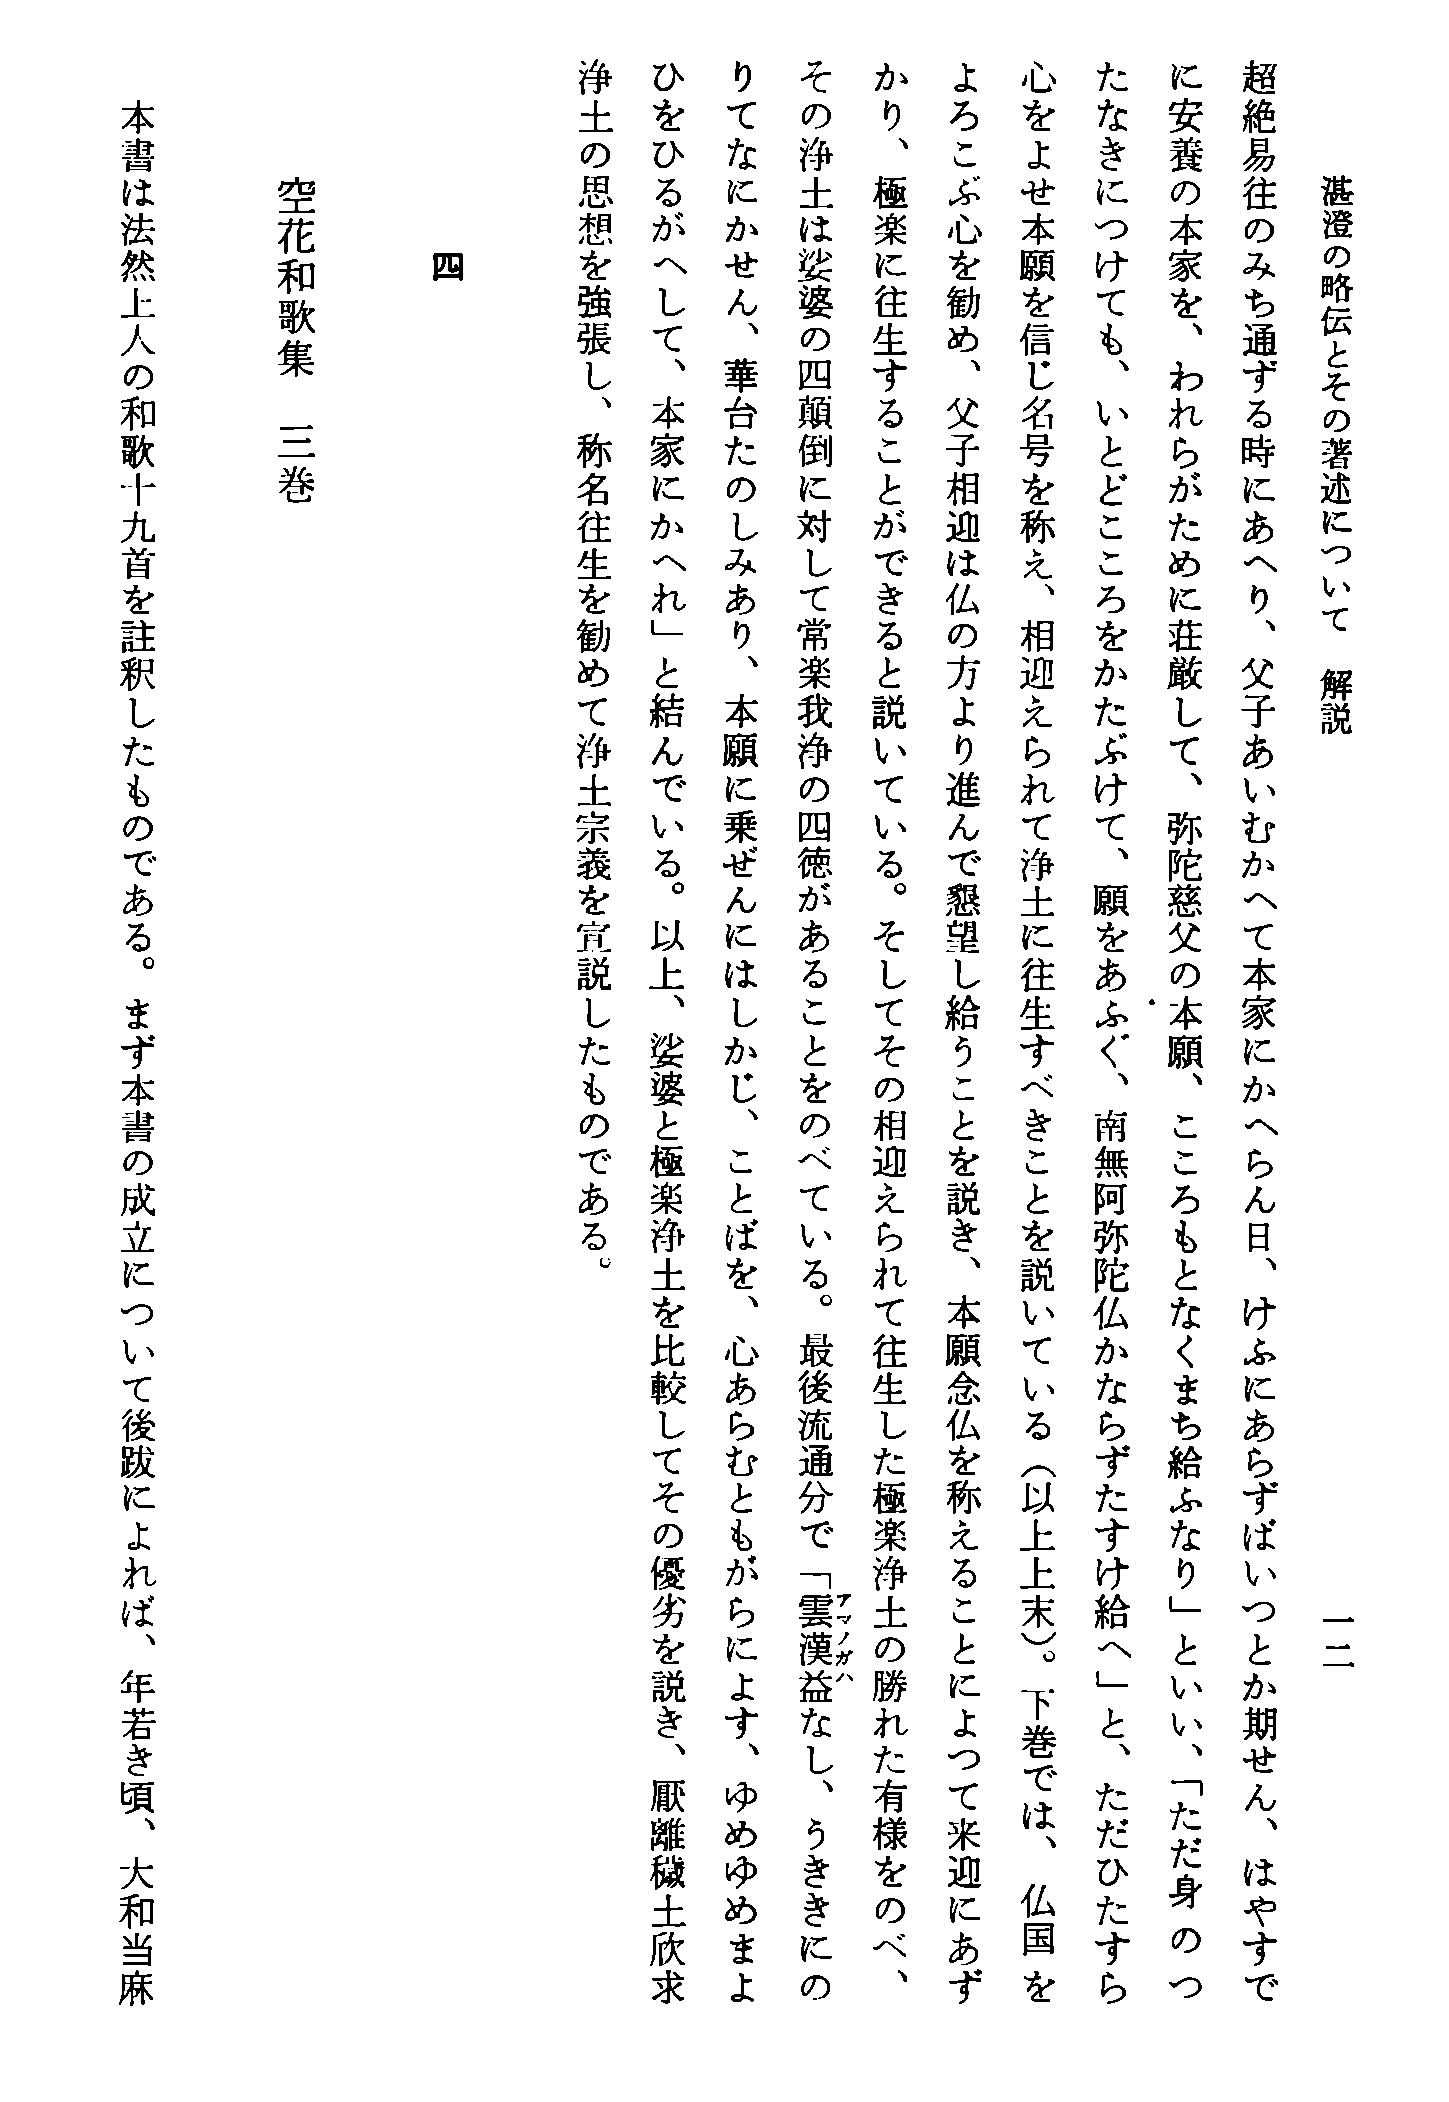 湛澄の略伝とその著述について　解説　一二
超絶易往のみち通ずる時にあへり、父子あいむかへて本家にかへらん日、けふにあらずばいつとか期せん、はやすで
に安養の本家を、われらがために荘厳して、弥陀慈父の本願、こころもとなくまち給ふなり」といい、「ただ身のつ
たなきにつけても、いとどこころをかたぶけて、願をあふぐ、南無阿弥陀仏かならずたすけ給へ」と、ただひたすら
心をよせ本願を信じ名号を称え、相迎えられて浄土に往生すべきことを説いている（以上上末）。下巻では、仏国を
よろこぶ心を勧め、父子相迎は仏の方より進んで懇望し給うことを説き、本願念仏を称えることによつて来迎にあず
かり、極楽に往生することができると説いている。そしてその相迎えられて往生した極楽浄土の勝れた有様をのべ、
その浄土は娑婆の四顛倒に対して常楽我浄の四徳があることをのべている。最後流通分で「雲漢益なし、うききにの
アマノガハ
りてなにかせん、華台たのしみあり、本願に乗ぜんにはしかじ、ことばを、心あらむともがらによす、ゆめゆめまよ
ひをひるがへして、本家にかへれ」と結んでいる。以上、娑婆と極楽浄土を比較してその優劣を説き、厭離穢土欣求
浄土の思想を強張し、称名往生を勧めて浄土宗義を宣説したものである。
四
空花和歌集　三巻
本書は法然上人の和歌十九首を註釈したものである。まず本書の成立について後跋によれば、年若き頃、大和当麻